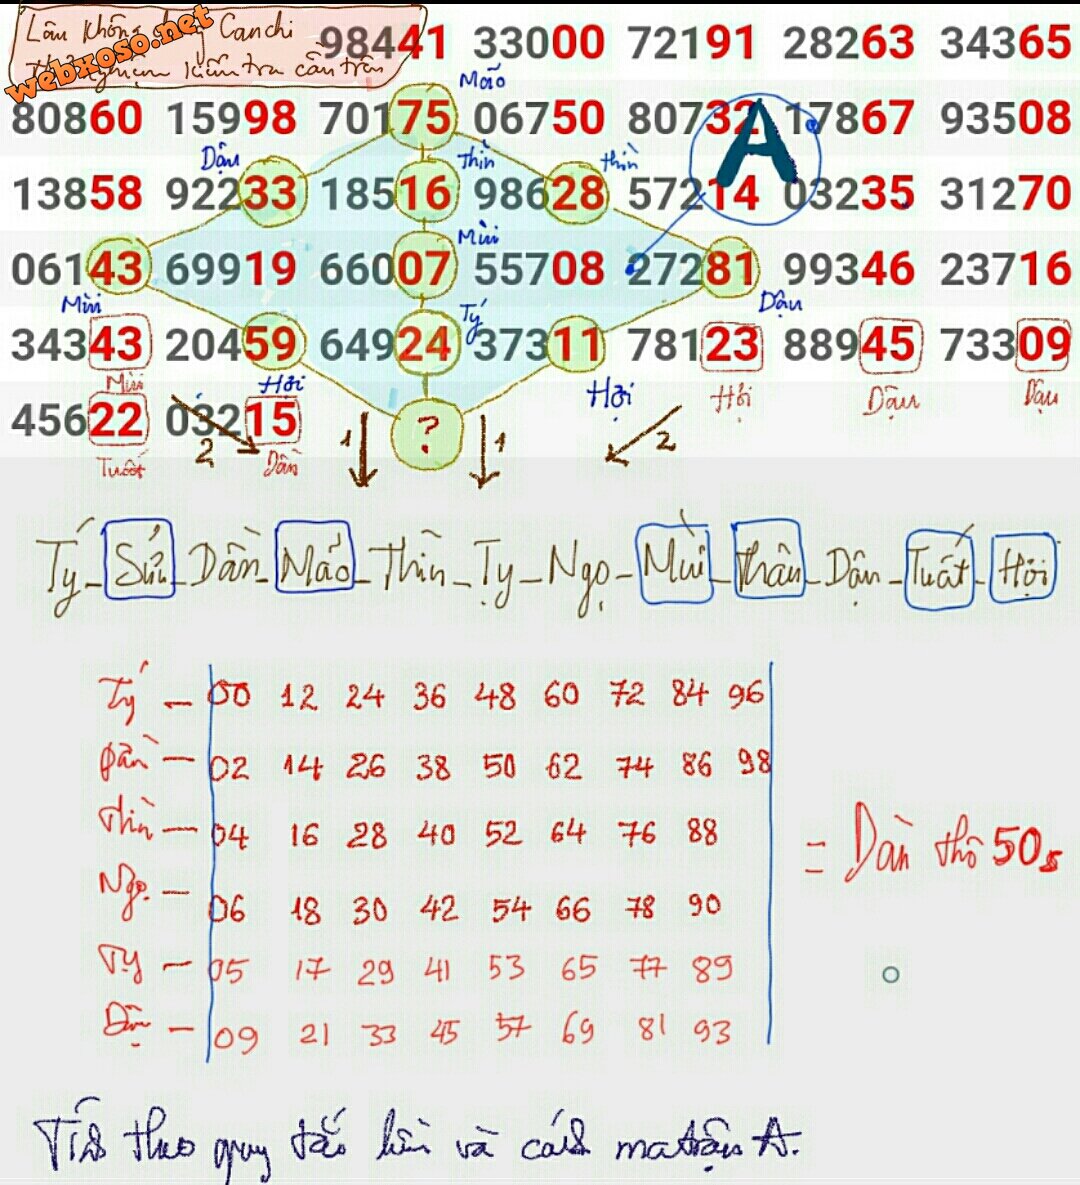 Lâu không Canchi
webxoso.net kiểm tra cầu trên
98441 33000 72191 28263 34365
Mão
80860 15998 70175 06750 80732 17867 93508
A
Dậu Thìn thìn
13858 92233 18516 98628 57214 03235 31270
Mùi
06143 69919 66007 55708 27281 99346 23716
Mùi Tý Dậu
34343 20459 64924 37311 78123 88945 73309
Mùi Hởi Hợi Hởi Dậu Dậu
45622 03215 ?
2 1 1 2
Tuất Dần
Tý - Sửu - Dần - Mảo - Thìn - Tỵ - Ngọ - Mùi - Thân - Dậu - Tuất - Hợi
Tý - 00 12 24 36 48 60 72 84 96
Dần - 02 14 26 38 50 62 74 86 98
Thìn - 04 16 28 40 52 64 76 88
= Dàn thô 50s
Ngọ - 06 18 30 42 54 66 78 90
Tỵ - 05 17 29 41 53 65 77 89
Dậu - 09 21 33 45 57 69 81 93
Tính theo quy tắc liền và cách ma trận A.